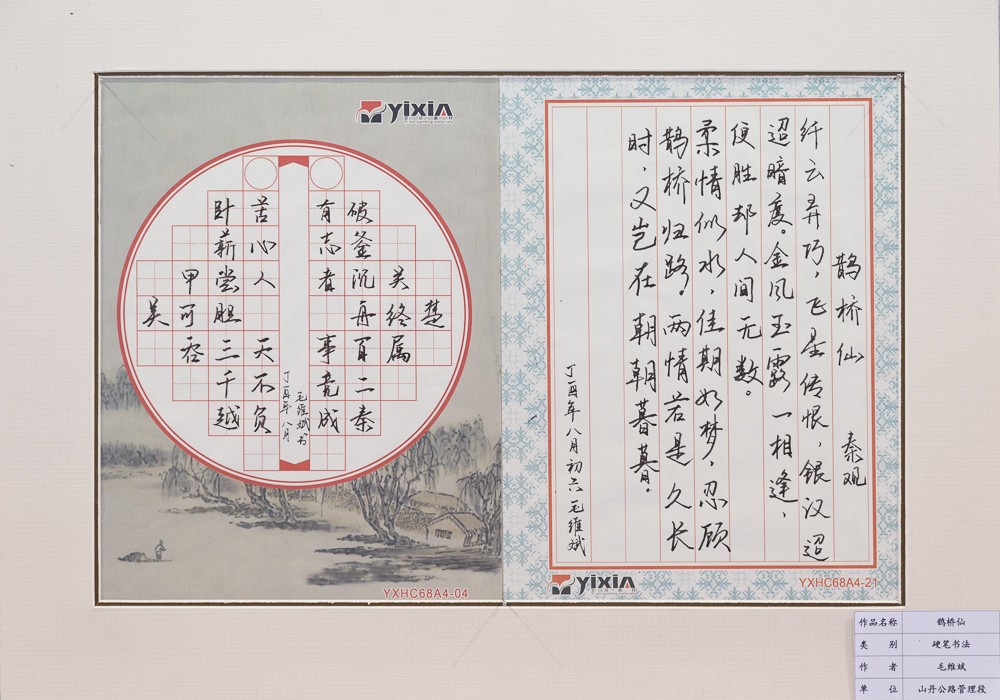 鹊桥仙 秦观
纤云弄巧，飞星传恨，银汉迢
迢暗度。金风玉露一相逢，
便胜却人间无数。
柔情似水，佳期如梦，忍顾
鹊桥归路。两情若是久长
时，又岂在朝朝暮暮。
丁酉年八月初六 毛维斌
yixin
YXHC68A4-21
yixin
有志者 事竟成
破釜沉舟百二秦
关终属
楚
苦心人 天不负
卧薪尝胆三千越
甲可吞
吴
丁酉年八月
毛维斌书
YXHC68A4-04
作品名称 鹊桥仙
类 别 硬笔书法
作 者 毛维斌
单 位 山丹公路管理段